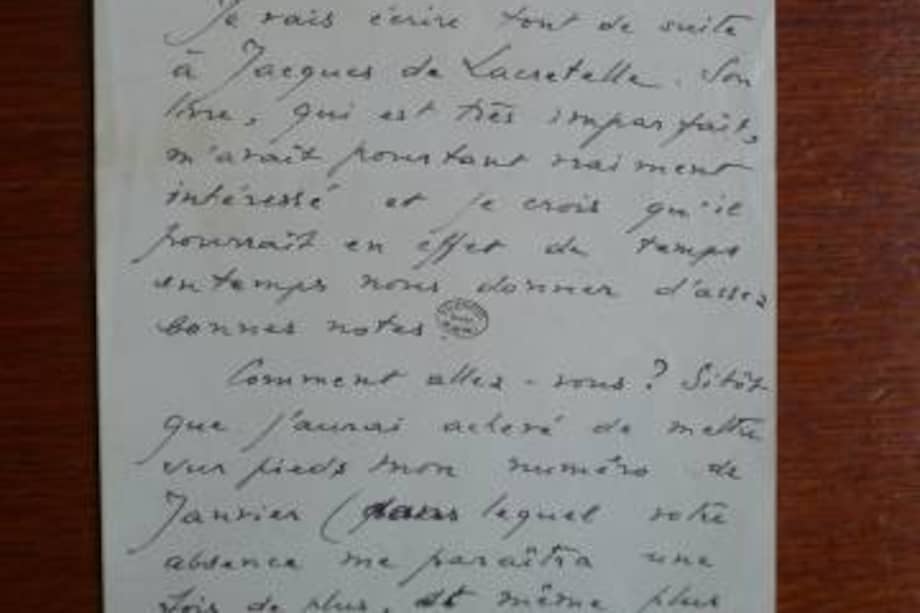 Je vais écrire tout de suite
à Jacques de Lacretelle. Son
livre, qui est très imparfait,
m'avait pourtant vraiment
intéressé et je crois qu'il
pourrait en effet de temps
en temps nous donner d'assez
bonnes notes.
Comment allez-vous ? Sitôt
que j'aurai achevé de mettre
sur pieds mon numéro de
Janvier (dans lequel votre
absence me paraîtra une
fois de plus, et même plus